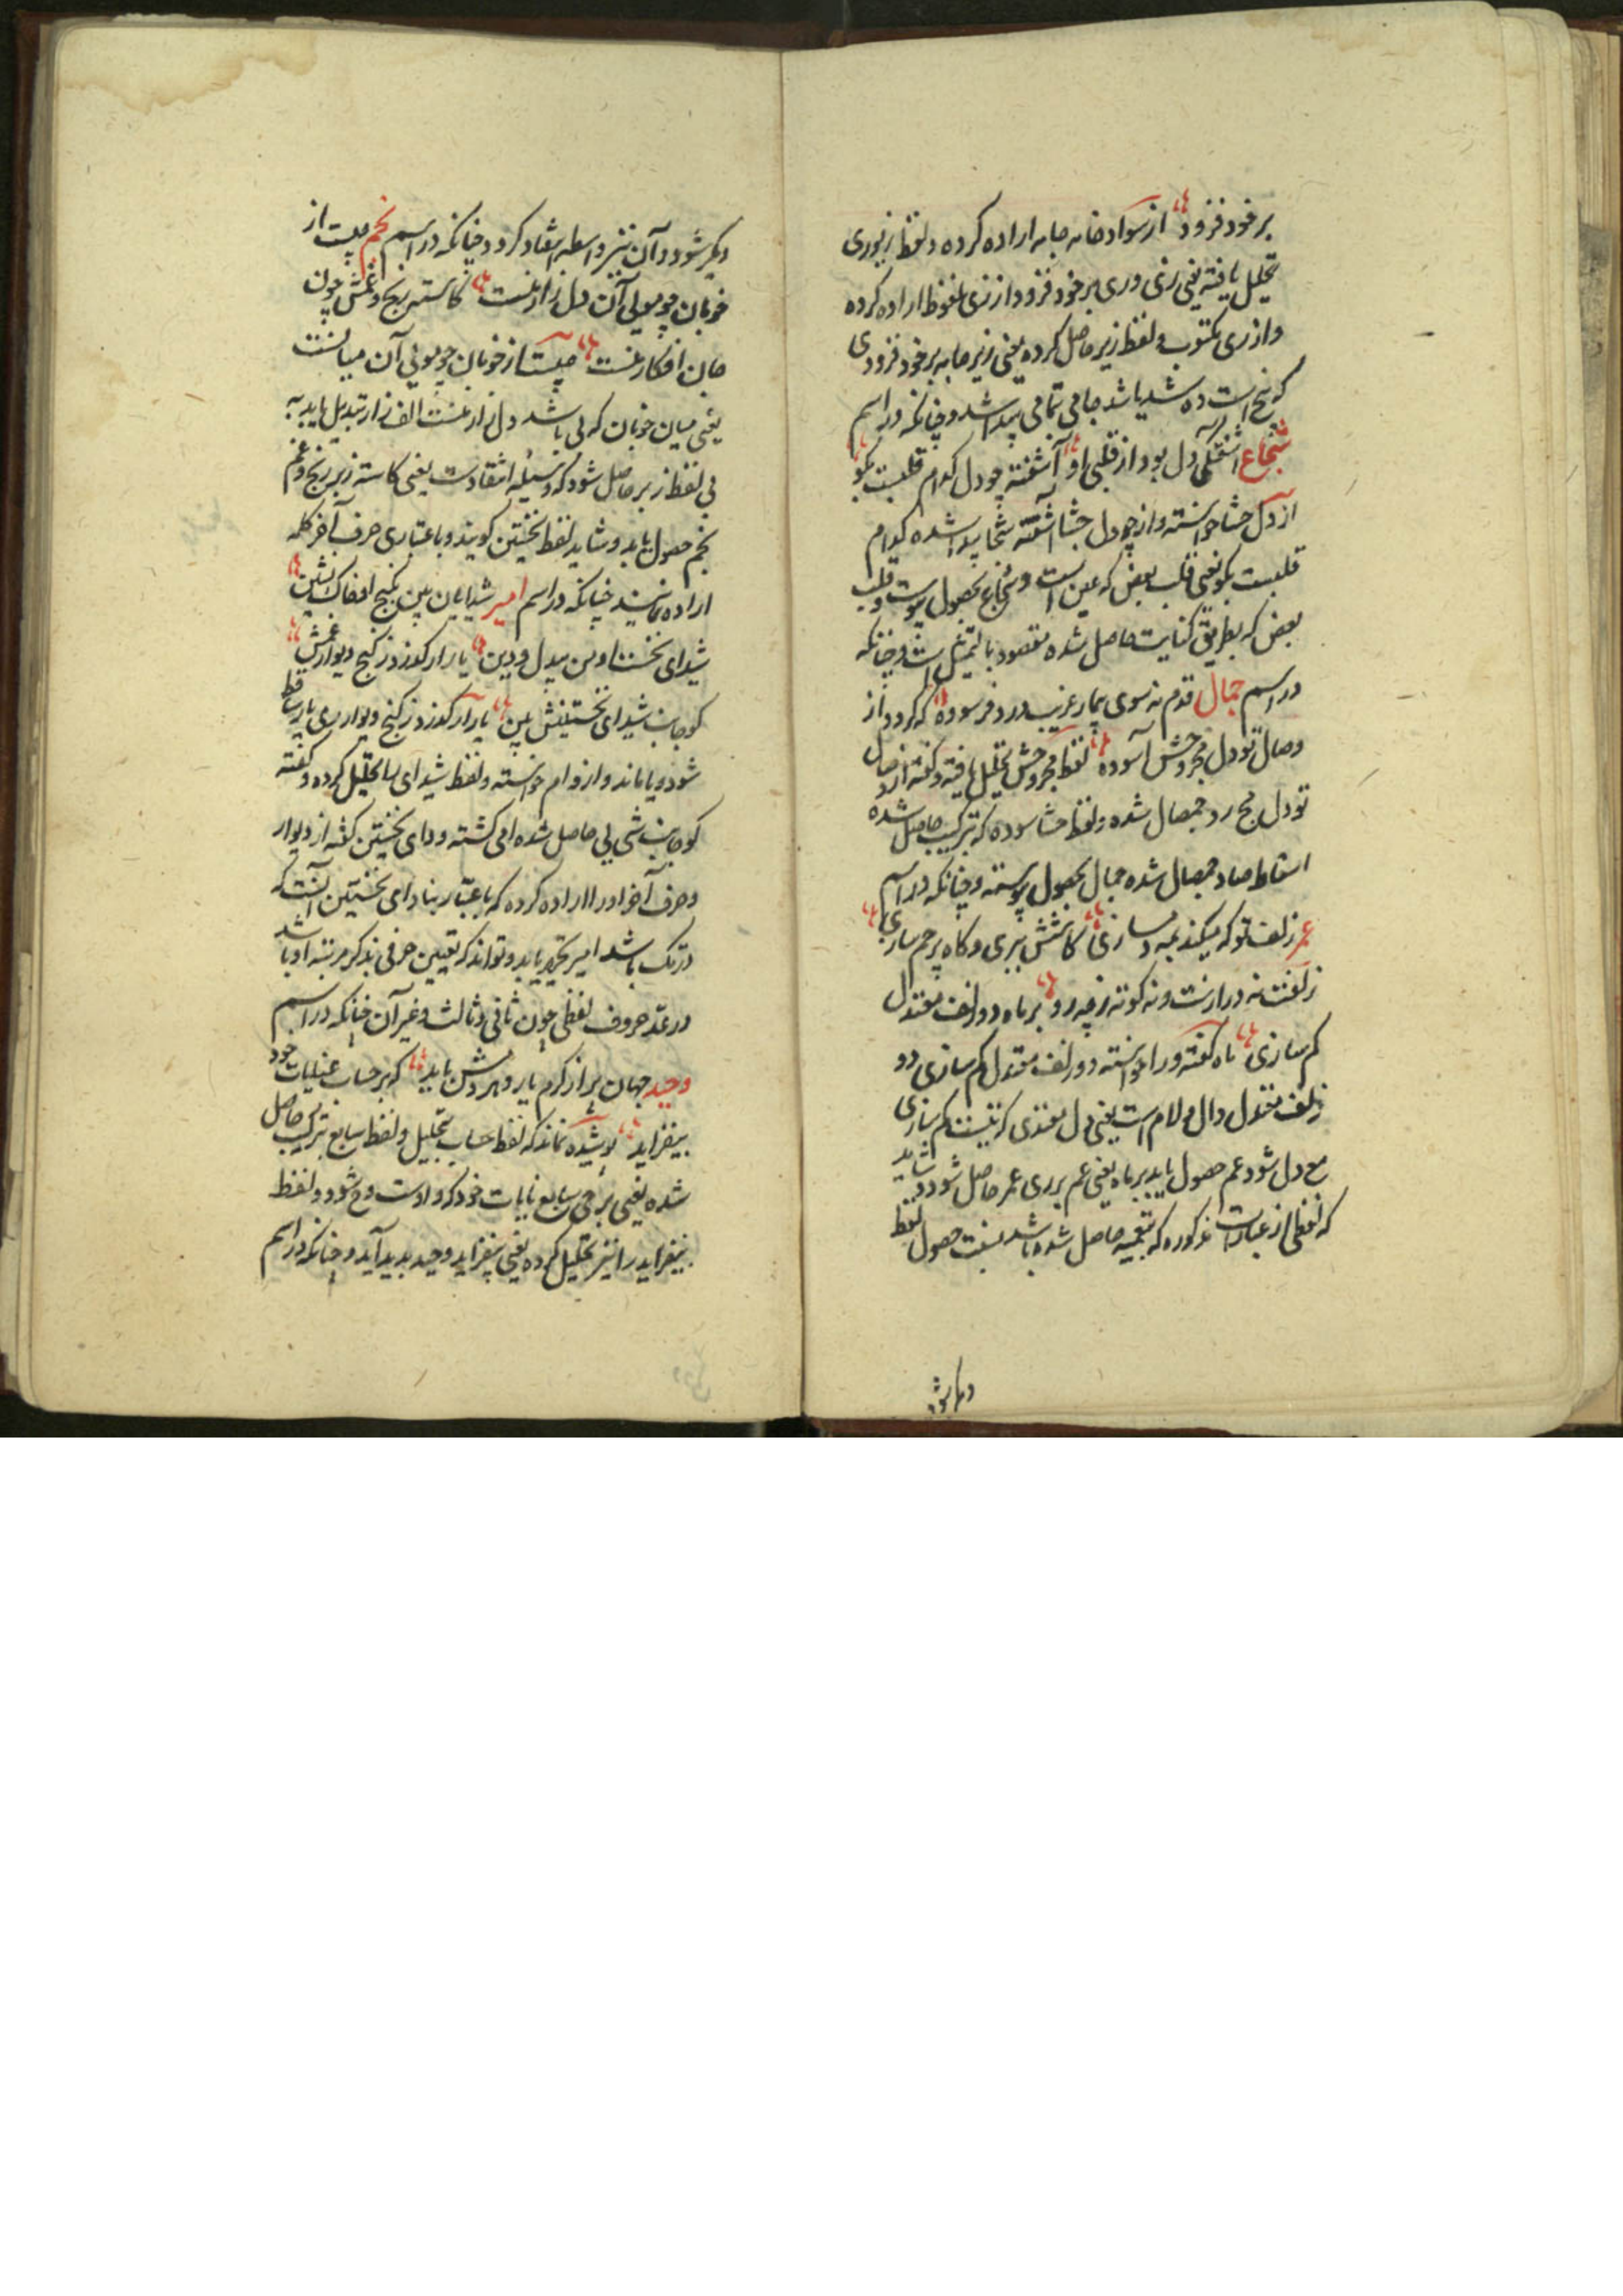 بر خود فزود از سواد خانه جا به اراده کرده و لفظ زیوری
تحلیل یافته یعنی زی وری بر خود فزود از زی ملفوظ اراده کرده
و از ری مکتوب و لفظ زیر حاصل کرده یعنی زیر جا به بر خود فزودی
که نج است ده شد یا شد جامی تمامی پیدا شد و چنانکه در اسم
شجاع آشفتگی دل بود از قلبی او آشفته چو دل کدام قلبست بگو
از دل حشا خواسته و از چو دل حشا آشفته شجا پیدا شده کدام
قلبست بگو یعنی قلب بعض که عین است و شجاع بحصول پیوست و قلب
بعض که بطریق کنایت حاصل شده مقصود بالتمثیل است و چنانکه
در اسم جمال قدم نه سوی بیمار غریب درد فرسوده که گردد از
وصال تو دل مجروحش آسوده لفظ مجروحش تحلیل یافته و گفته از وصال
تو دل مج رد جمصال شده و لفظ حشا سوده که بترکیب حاصل شده
اسقاط صاد جمصال شده جمال بحصول پیوسته و چنانکه در اسم
عمر زلف تو که میکند همه دمسازی گاهش ببری و گاه پر خم سازی
زلفت نه درازست و نه کوته ز چه رو بر ماه دو زلف معتدل
کم سازی ماه گفته و را خواسته دو زلف معتدل کم سازی دو
زلف معتدل دال و لام است یعنی دل معتدی که نیست کم سازی
مع دل شود عم حصول یابد بر ماه یعنی عم بر ری عمر حاصل شود و شاید
که لفظی از عبارات مذکوره که بتعمیه حاصل شده باشد نسبت حصول لفظ
دیگر شود و آن نیز واسطه انتقاد گردد چنانکه در اسم نجم چیست از
خوبان چو مویی آن دل زار منست کاسته رنج و غمش چون
جان افکار منست چیست از خوبان چو مویی آن میانست
یعنی میان خوبان که بی باشد دل زار منست الف زار تبدیل یابد به
بی لفظ زبر حاصل شود که وسیله انتقادست یعنی کاسته زبر رنج و غم
نجم حصول یابد و شاید لفظ نخستین گویند و باعتباری حرف آخر کلمه
اراده نمایند چنانکه در اسم امیر شدایان ببین بکنج افضاک نشین
شیدای نخستا وین بیدل و دین یا را ر گذر دز کنج دیوار غمش
کو جانب شیدای نخستینش ببین یا را ر گذر دز کنج دیوار ری یا را ساقط
شود و یا ماند و از و ام خواسته و لفظ شیدای را تحلیل کرده و گفته
کو جانب شی یی حاصل شده امی گشته و دای نخستین گفته از دیوار
و حرف آخر او را اراده کرده که باعتبار بنا دای نخستین آنست که
در تک باشد امیر تحریر یابد و تواند که تعیین حرفی بذکر مرتبه او باشد
در عد حروف لفظی چون ثانی و ثالث و غیر آن چنانکه در اسم
وحید جهان پر از کرم یار و مهر و دش باید که بر حساب عنایات خود
بیفزاید پوشیده نماند که لفظ حساب تحلیل و لفظ سابع بترکیب حاصل
شده یعنی بر حی سابع نایات خود که واوست وح شود و لفظ
بیفزاید را نیز تحلیل کرده یعنی بیفزاید وحید پدید آید و چنانکه در اسم